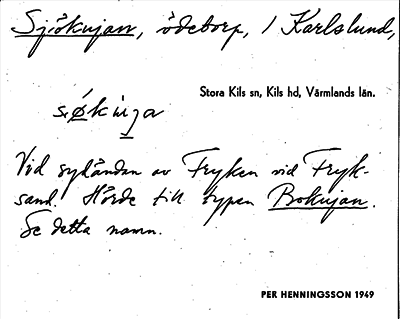 Sjökujan, ödetorp, i Karlslund,
Stora Kils sn, Kils hd, Värmlands län.
Vid sydändan av Fryken vid Fryk-
sand. Hörde till typen Bokujan.
Se detta namn.
PER HENNINGSSON 1949